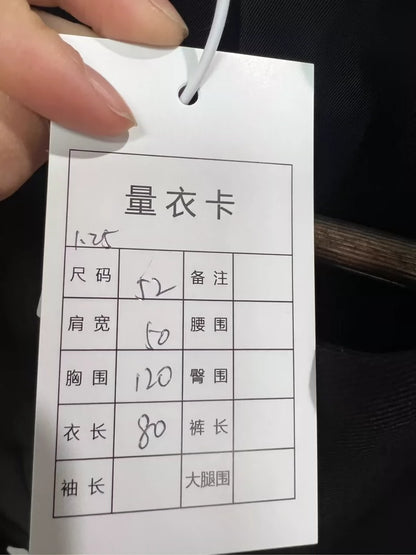 量衣卡
1.25
尺码 52 备注
肩宽 50 腰围
胸围 120 臀围
衣长 80 裤长
袖长 大腿围